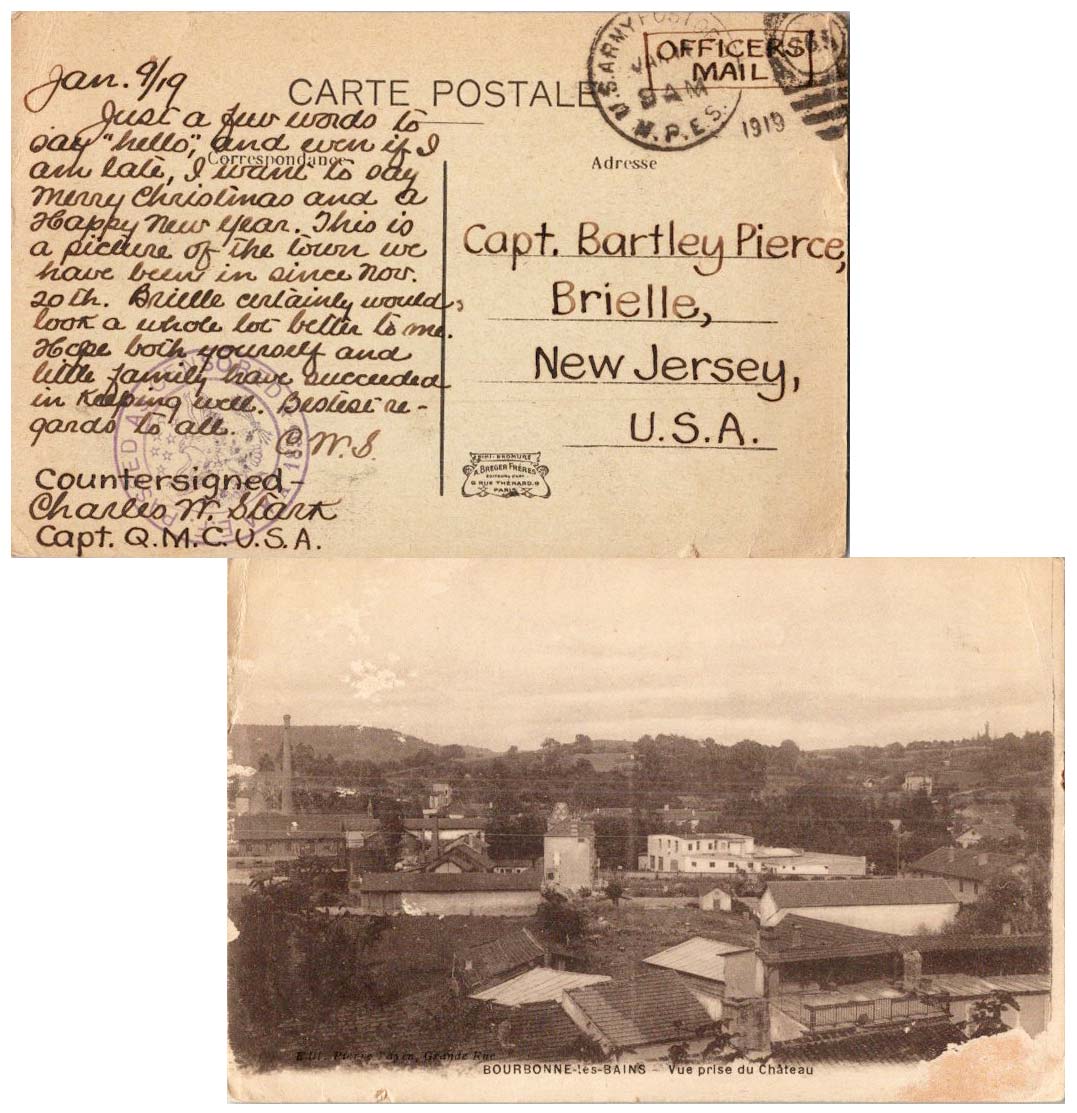 Jan. 9/19
Just a few words to
say "hello," and even if I
am late, I want to say
Merry Christmas and a
Happy New Year. This is
a picture of the town we
have been in since Nov.
20th. Brielle certainly would,
look a whole lot better to me.
Hope both yourself and
little family have succeeded
in keeping well. Bestest re-
gards to all.
C.W.S.
Countersigned-
Charles W. Stark
Capt. Q.M.C. U.S.A.
CARTE POSTALE
Correspondance
Adresse
U.S. ARMY POST
JAN
9 AM
M.P.E.S.
1919
OFFICERS
MAIL
Capt. Bartley Pierce,
Brielle,
New Jersey,
U.S.A.
PASSED AS CENSORED
A.E.F.
BROMURE
A. BREGER FRÈRES
EDITEURS D'ART
9 RUE THÉNARD. 9
PARIS
Edit. Pierre Payen, Grande Rue
BOURBONNE-les-BAINS - Vue prise du Château